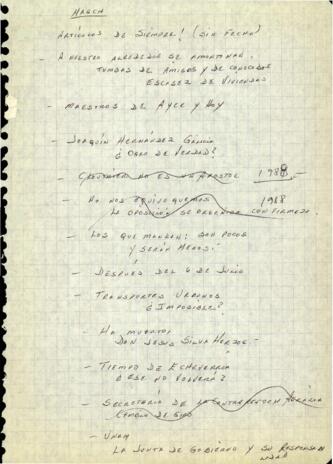 MARCH
ARTÍCULOS DE SIEMPRE! (SIN FECHA)
- A NUESTRO ALREDEDOR SE AMONTONAN:
TUMBAS DE AMIGOS Y DE CONOCIDOS
ESCASEZ DE VIVIENDAS
- MAESTROS DE AYER Y HOY
- JOAQUÍN HERNÁNDEZ GALICIA
¿ OBRA DE VERDAD?
- NO ES UN APOSTOL 1988 -
- NO NOS EQUIVOQUEMOS 1988
LA OPOSICIÓN SE ORGANIZA CON FIRMEZA
- LOS QUE MANDAN: SON POCOS
Y SERÁN MENOS.-
- DESPUES DEL 6 DE JULIO
- TRANSPORTES URBANOS
¿ IMPOSIBLE?
- HA MUERTO:
DON JESUS SILVA HERZOG -
- TIEMPO DE ECHEVERRIA
¿ ESE NO VOLVERÁ?
- SECRETARÍA DE LA CONTRA REFORMA AGRARIA
CAMBIO DE GIRO
- UNAM
LA JUNTA DE GOBIERNO Y SU RESPONSABI
LIDAD